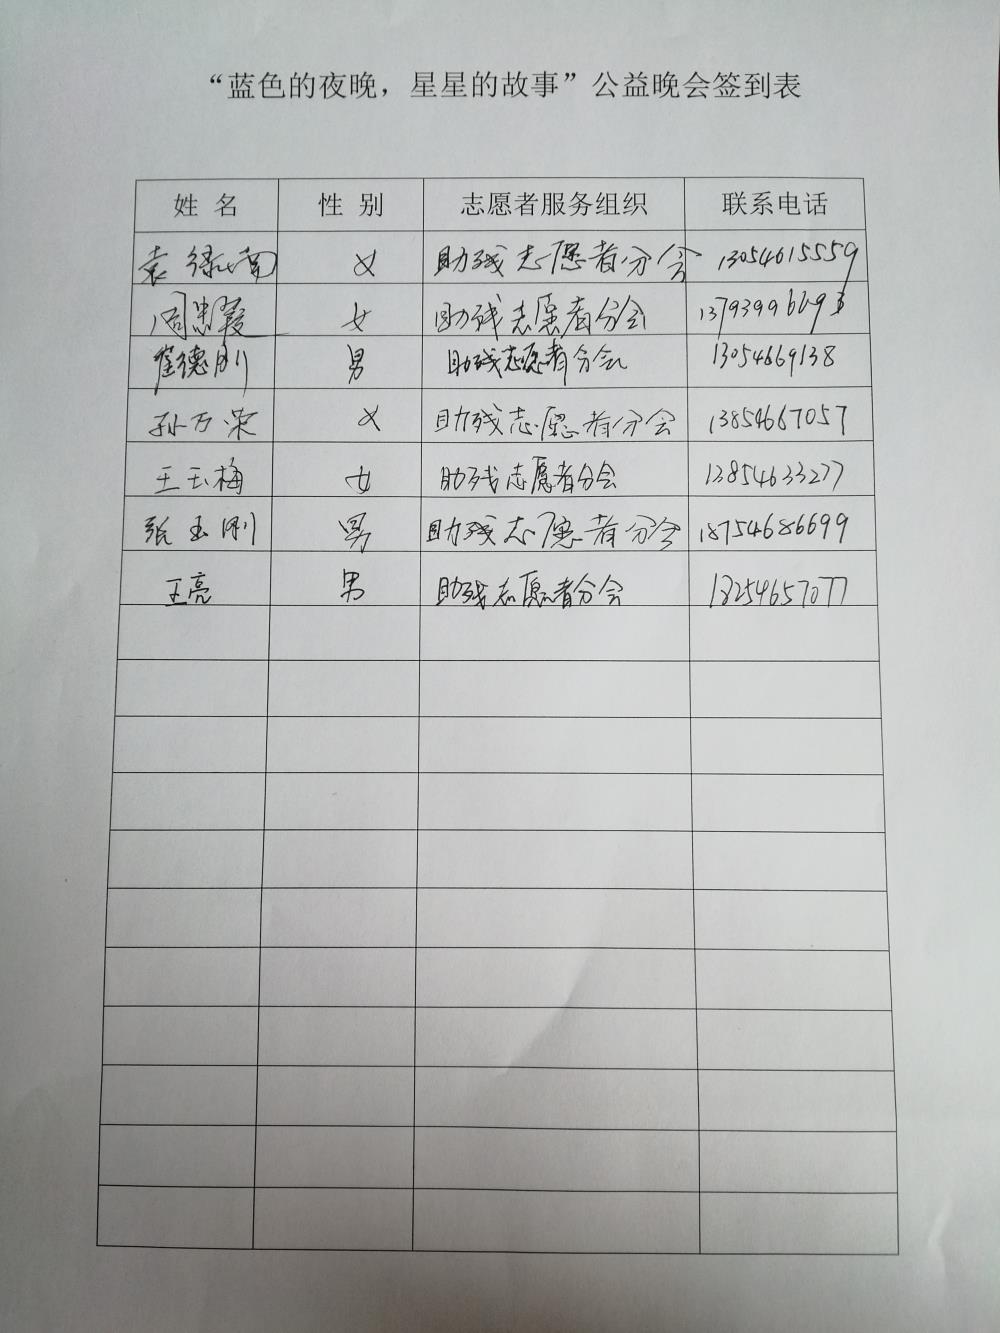 “蓝色的夜晚，星星的故事”公益晚会签到表
姓 名 性 别 志愿者服务组织 联系电话
袁 女 助残志愿者分会 13054615559
周惠霞 女 助残志愿者分会
崔德刚 男 助残志愿者分会 13054669138
孙万荣 女 助残志愿者分会 13854667057
王玉梅 女 助残志愿者分会 13854633277
张玉刚 男 助残志愿者分会 18754686699
王亮 男 助残志愿者分会 18254657077